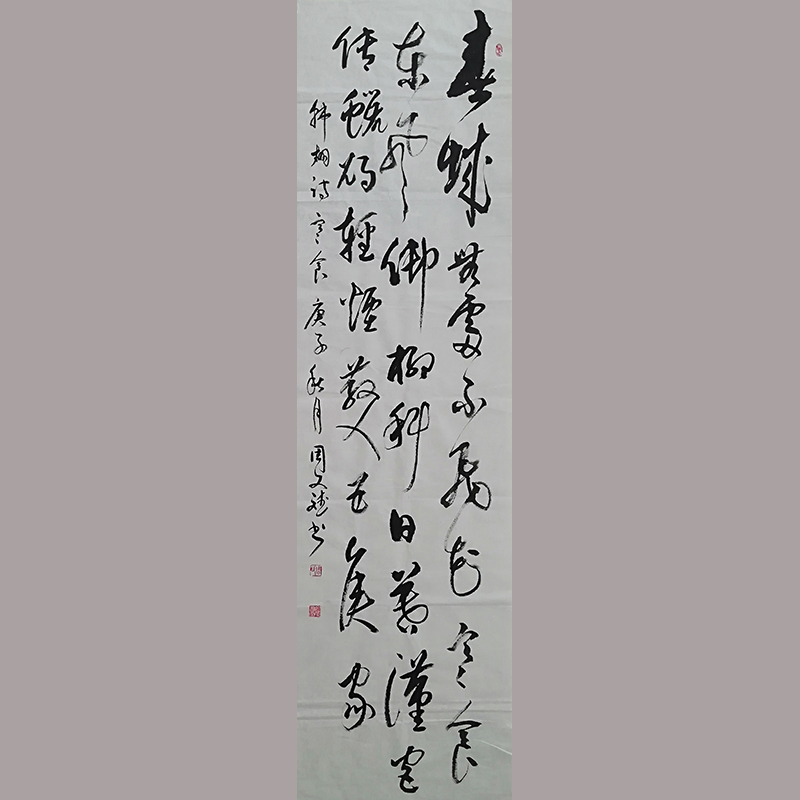 春城無處不飛花寒食
東風御柳斜日暮漢宮
傳蠟燭輕煙散入五侯家
韩翃诗寒食庚子秋月周文斌书